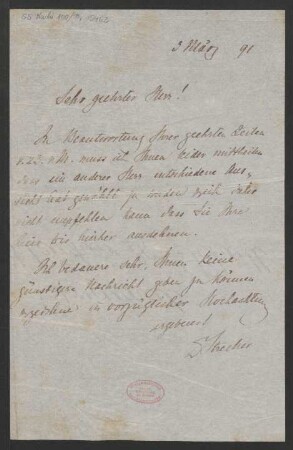 3 März 91
Sehr geehrter Herr!
In Beantwortung Ihrer geehrten Zeilen
v. 23. v. Mts. muss ich Ihnen leider mittheilen
dass ein anderer Herr entschiedene Aus-
sicht hat gewählt zu werden ich daher
nicht empfehlen kann dass Sie Ihre
bis hierher ausdehnen.
Ich bedauere sehr, Ihnen keine
günstigere Nachricht geben zu können
zeichne in vorzüglicher Hochachtung
ergebenst